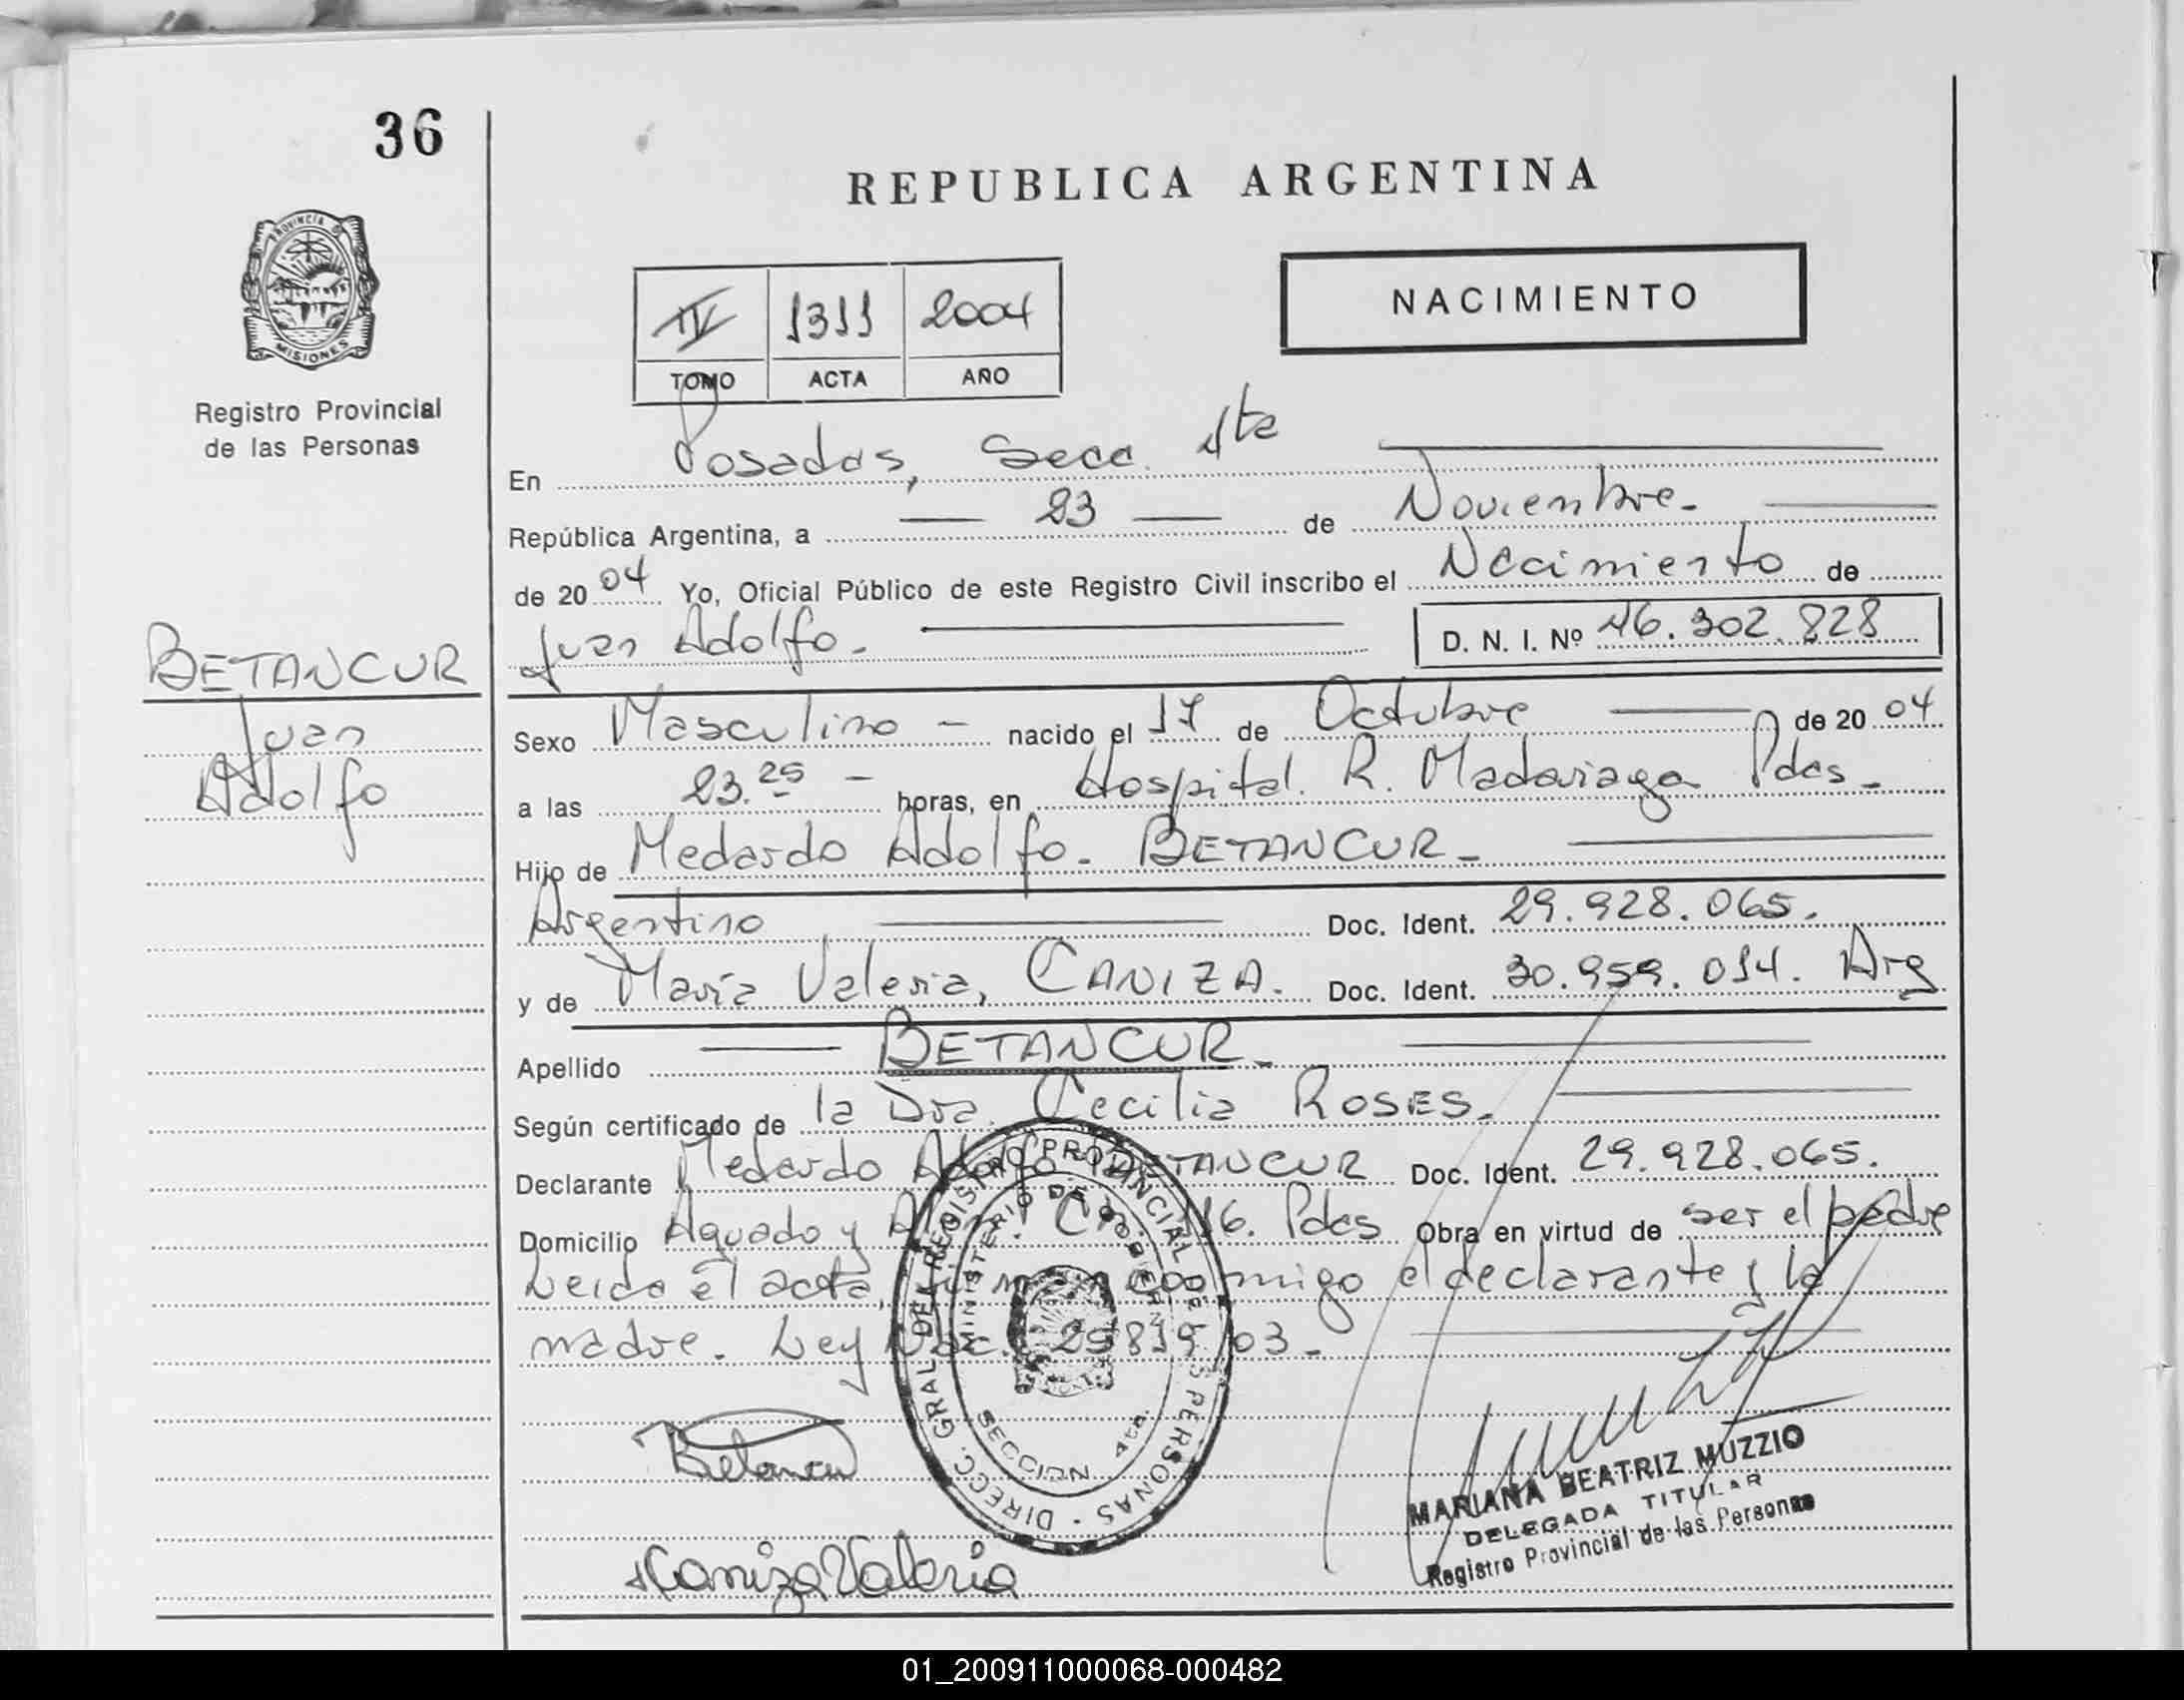 36
REPUBLICA ARGENTINA
PROVINCIA DE
MISIONES
Registro Provincial
de las Personas
IV 1311 2004
TOMO ACTA AÑO
NACIMIENTO
En Posadas, Secc. 4ta
República Argentina, a 23 de Noviembre.
de 2004 Yo, Oficial Público de este Registro Civil inscribo el Nacimiento de
Juan Adolfo. D. N. I. Nº 46.302.828
BETANCUR
Juan
Adolfo
Sexo Masculino nacido el 17 de Octubre de 2004
a las 23.25 horas, en Hospital. R. Madariaga Pdas.
Hijo de Medardo Adolfo. BETANCUR
Argentino Doc. Ident. 29.928.065.
y de María Valeria, CANIZA. Doc. Ident. 30.959.014. Arg
Apellido BETANCUR
Según certificado de la Dra. Cecilia ROSES.
Declarante Medardo Adolfo BETANCUR Doc. Ident. 29.928.065.
Domicilio Aguado y 16. Pdas Obra en virtud de ser el padre
Leida el acta, conmigo el declarante y la
madre. Ley 25819/03.
DIRECC. GRAL. DEL REGISTRO PROVINCIAL DE LAS PERSONAS
MINISTERIO DE GOBIERNO
SECCION 4ta.
Betancur
Caniza Valeria
MARIANA BEATRIZ MUZZIO
DELEGADA TITULAR
Registro Provincial de las Personas
01_200911000068-000482